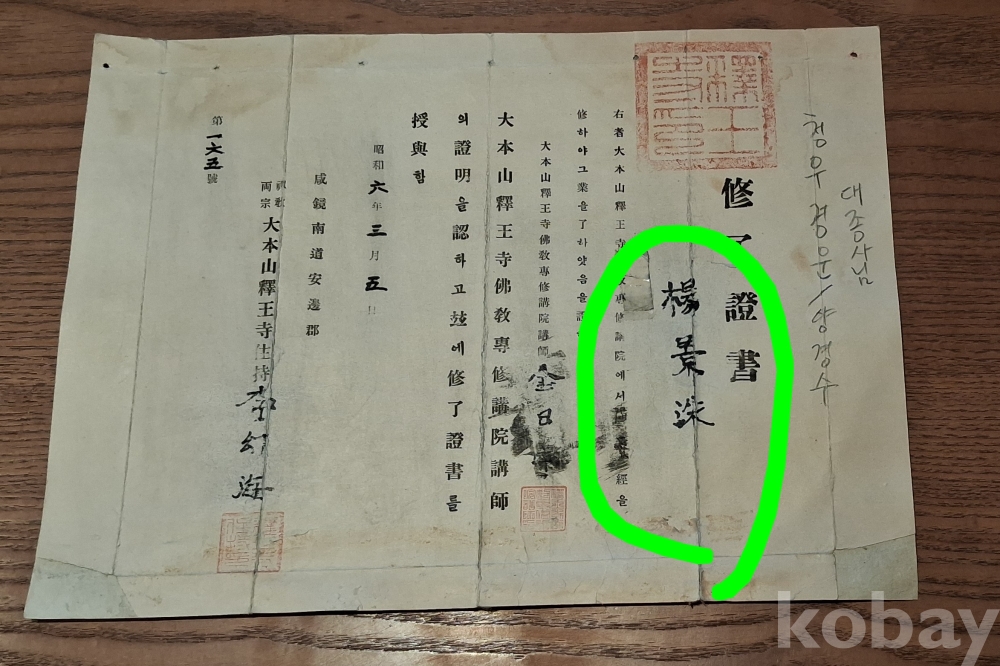 대종사님
청우경운 양경수
修了證書
楊景洙
右者大本山釋王寺佛敎專修講院에서 經을
修하야그業을了하얏음을證
大本山釋王寺佛敎專修講院講師 金日
大本山釋王寺佛敎專修講院講師
의證明을認하고玆에修了證書를
授與함
昭和六年三月五日
咸鏡南道安邊郡
禪敎兩宗大本山釋王寺住持 李幻海
第一六五號
kobay